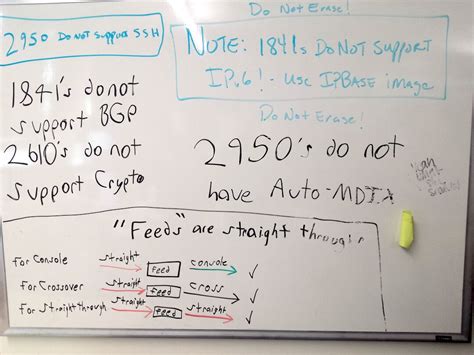 Do Not Erase!
2950 DO NOT SUPPORT SSH
NOTE: 1841s DO NOT SUPPORT
IPv6! - USE IPBASE image
Do Not Erase!
1841's do not
support BGP
2610's do not
support Crypto
2950's do not
have Auto-MDIX
"Feeds" are straight throughs
For Console straight feed console ✓
For Crossover straight feed cross ✓
For straight through straight feed straight ✓